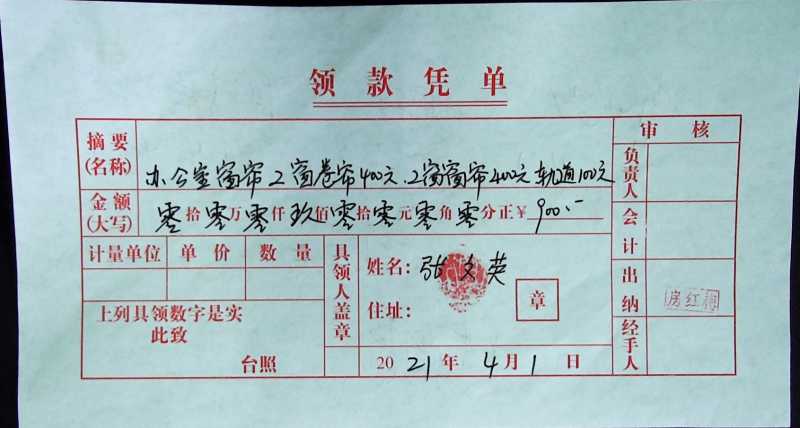 领款凭单
摘要(名称) 办公室窗帘2窗卷帘400元.2窗窗帘400元轨道100元
审核
负责人
金额(大写) 零拾零万零仟玖佰零拾零元零角零分正¥900.-
会计
计量单位 单价 数量
具领人盖章
姓名:张文英
住址:
章
出纳
上列具领数字是实
此致
台照
2021年4月1日
经手人